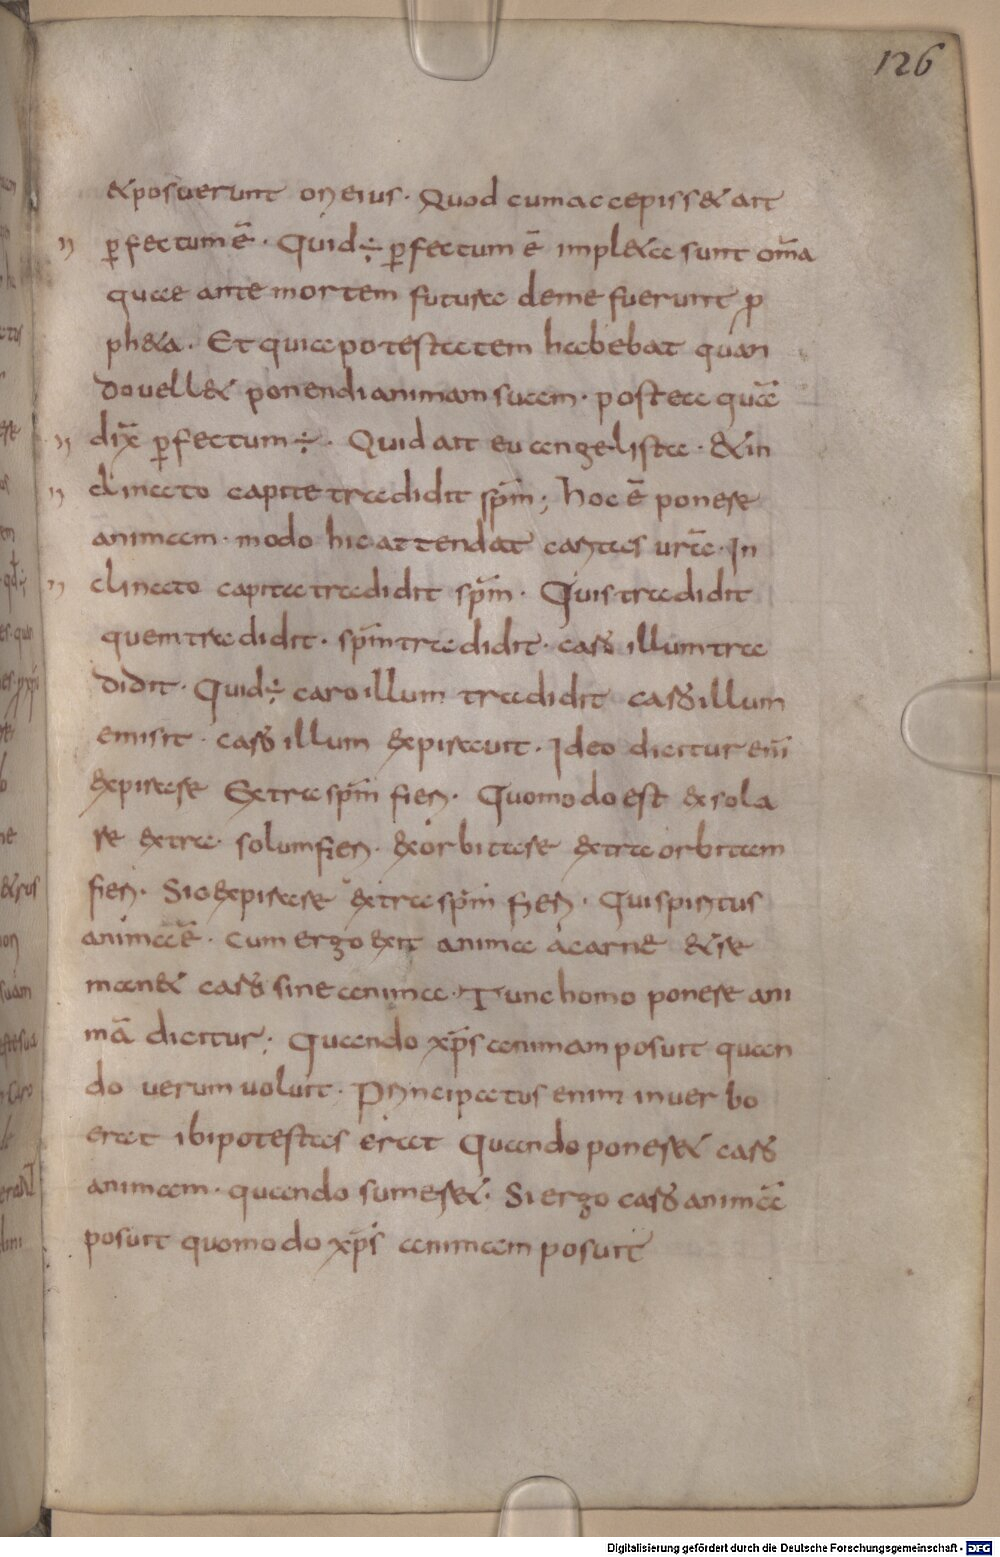 126
&posuerunt ori eius · Quod cum accepiss& ait
ꝑfectum ē · Quid ÷ ꝑfectum ē implexa sunt om̄a
quae ante mortem futura de me fuerunt ꝓ
ph&a · Et quia potestatem habebat quan
do uell& ponendi animam suam · postea quā
dix̄ ꝑfectum ÷ · Quid ait euangelista · & in
clinato capite tradidit sp̄m ; hoc ē ponere
animam · modo hic attendat caritas ur̄a · In
clinato capite tradidit sp̄m · Quis tradidit
quem tradidit · sp̄m tradidit · caro illum tra
didit · Quid ÷ caro illum tradidit caro illum
emisit · caro illum expirauit · Ideo dicitur eni̅
expirare Extra sp̄m fieri · Quomodo est exsola
re extra solum fieri · exorbitare extra orbitam
fieri · Sic expirare extra sp̄m fieri · Qui spiritus
anima ē · Cum ergo exit anima a carne & re
man& caro sine anima · Tunc homo ponere ani
mā dicitur ; Quando xp̄s animam posuit quan
do uerum uoluit · Principatus enim in uerbo
erat ibi potestas erat Quando poner& caro
animam · quando sumer& · Si ergo caro animā
posuit quomodo xp̄s animam posuit
Digitalisierung gefördert durch die Deutsche Forschungsgemeinschaft - DFG